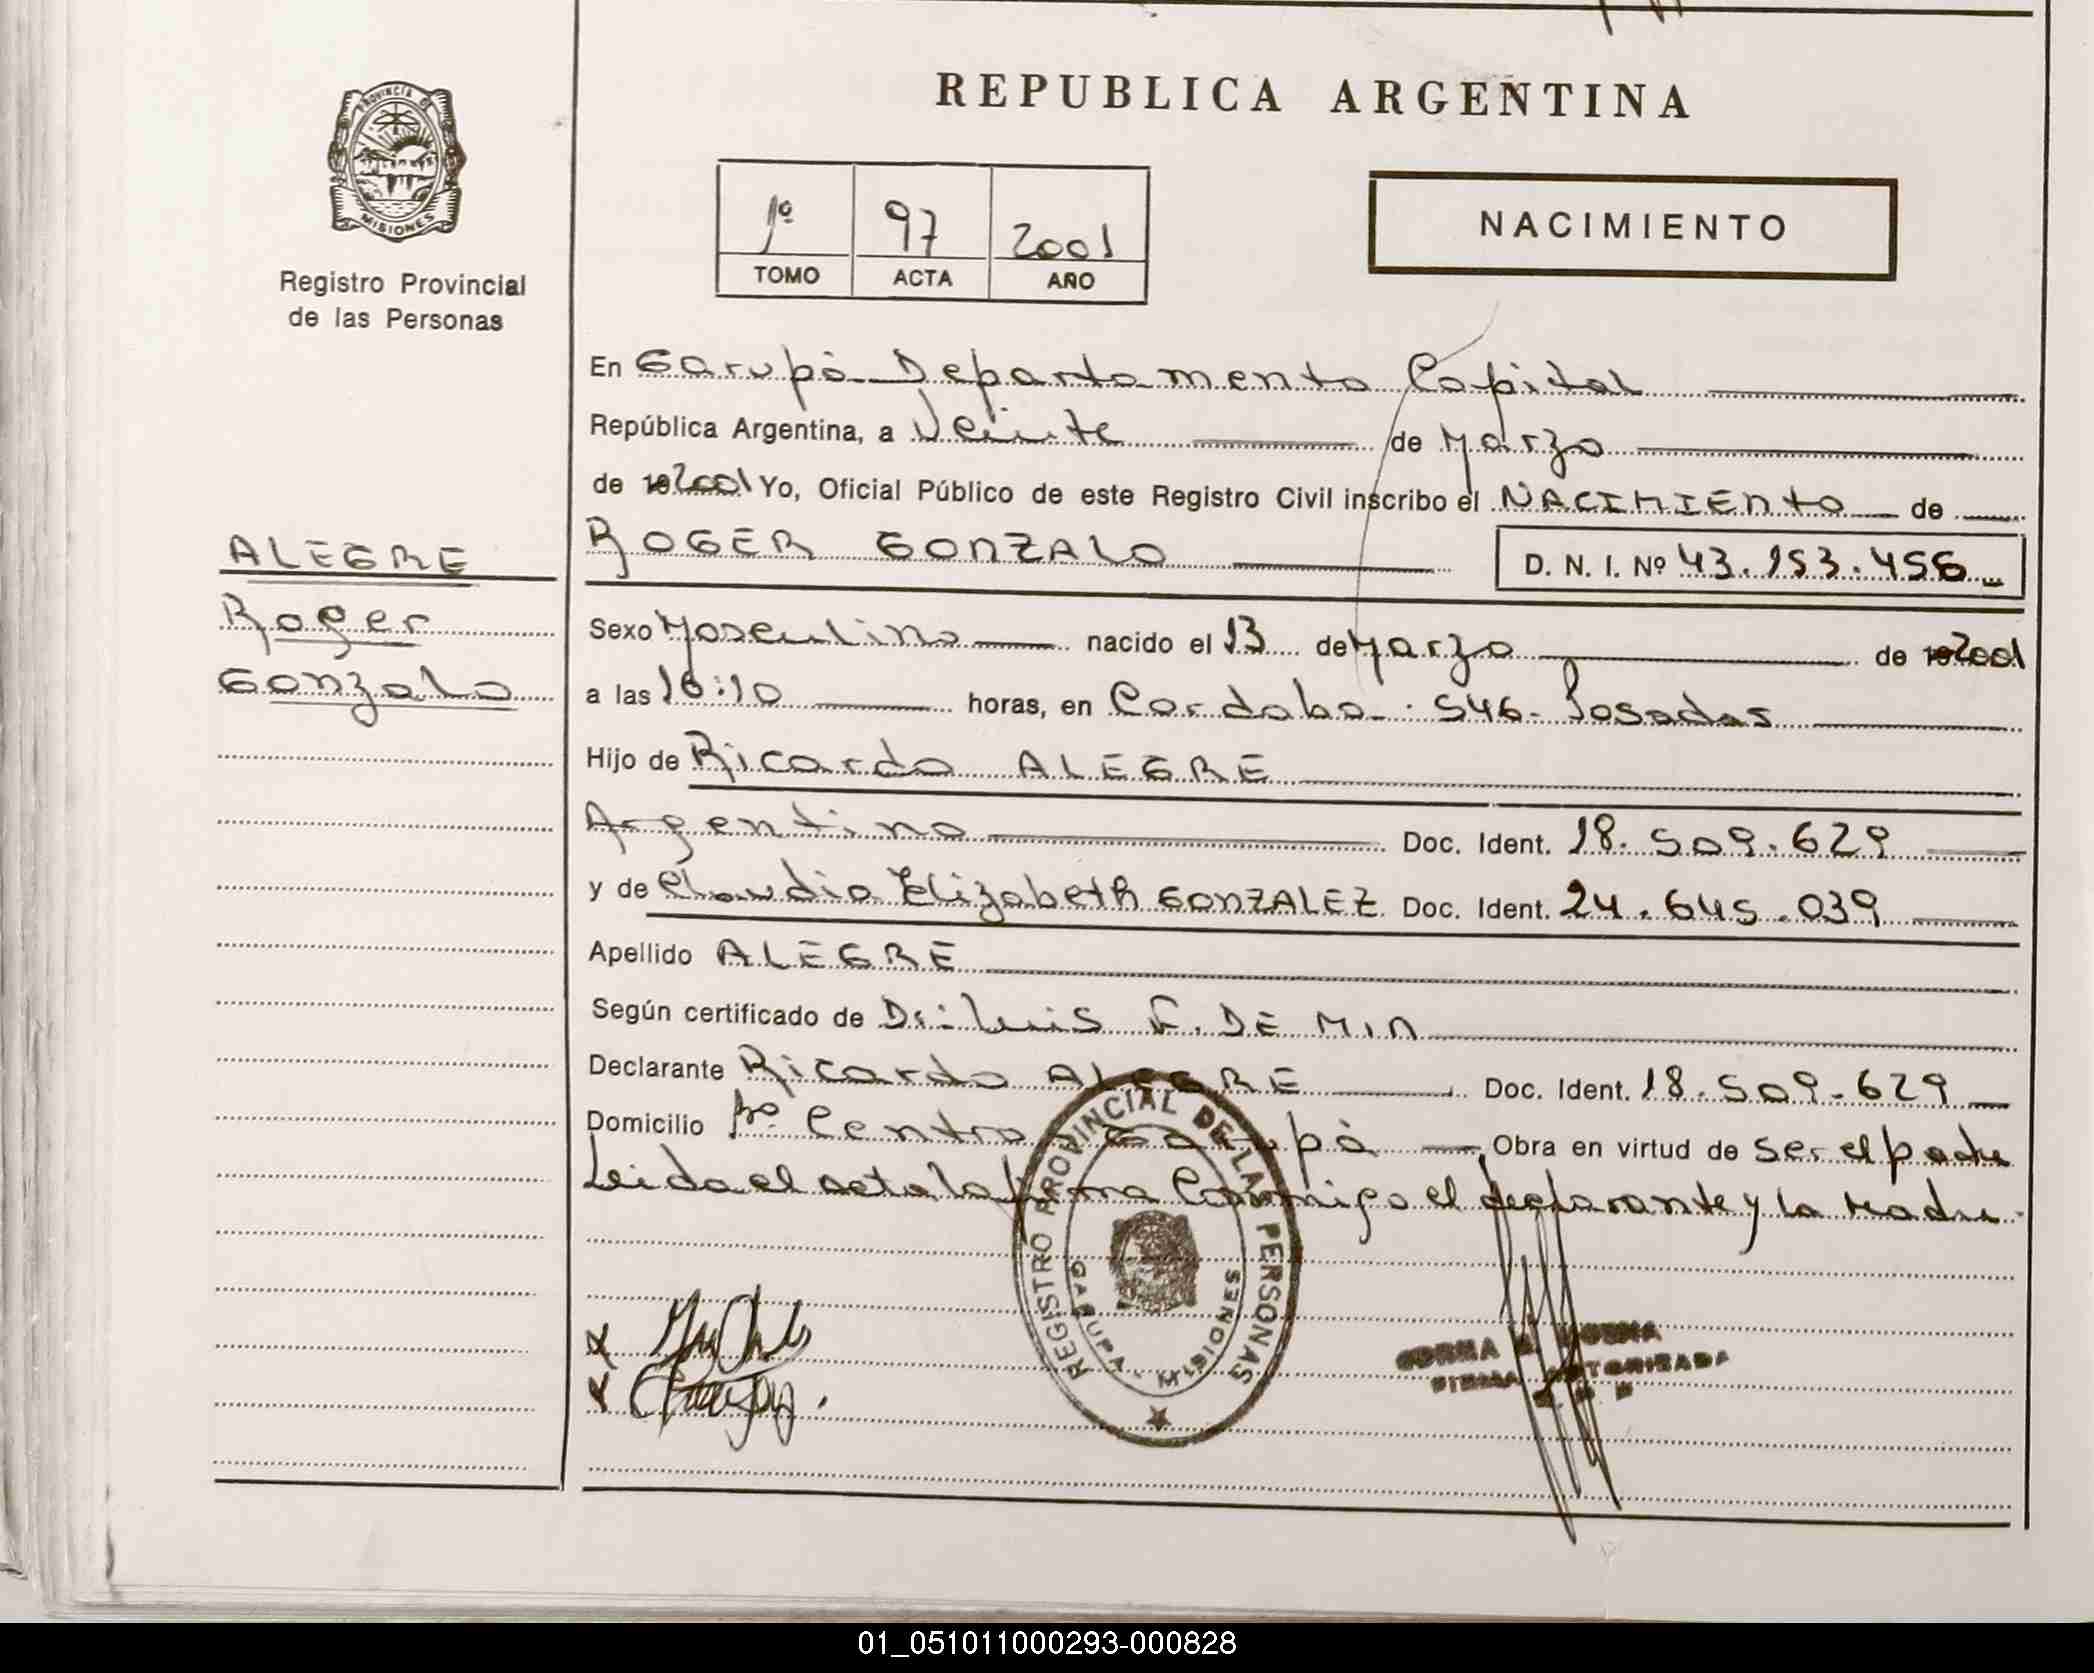 REPUBLICA ARGENTINA
PROVINCIA DE
MISIONES
Registro Provincial
de las Personas
1º 97 2001
TOMO ACTA AÑO
NACIMIENTO
En Garupá Departamento Capital
República Argentina, a Veinte de Marzo
de 2001 Yo, Oficial Público de este Registro Civil inscribo el NACIMIENTO de
ALEGRE
Roger
Gonzalo
ROGER GONZALO
D. N. I. Nº 43.153.456
Sexo Masculino nacido el 13 de Marzo de 2001
a las 16:10 horas, en Cordoba 546 Posadas
Hijo de Ricardo ALEGRE
Argentino Doc. Ident. 18.509.629
y de Claudia Elizabeth GONZALEZ Doc. Ident. 24.645.039
Apellido ALEGRE
Según certificado de Dr: Luis F. DE MIN
Declarante Ricardo ALEGRE Doc. Ident. 18.509.629
Domicilio Bº Centro Garupá Obra en virtud de ser el padre
Leida el acta la firma Conmigo el declarante y la madre.
REGISTRO PROVINCIAL DE LAS PERSONAS
GARUPA - MISIONES
FIRMA AUTORIZADA
01_051011000293-000828